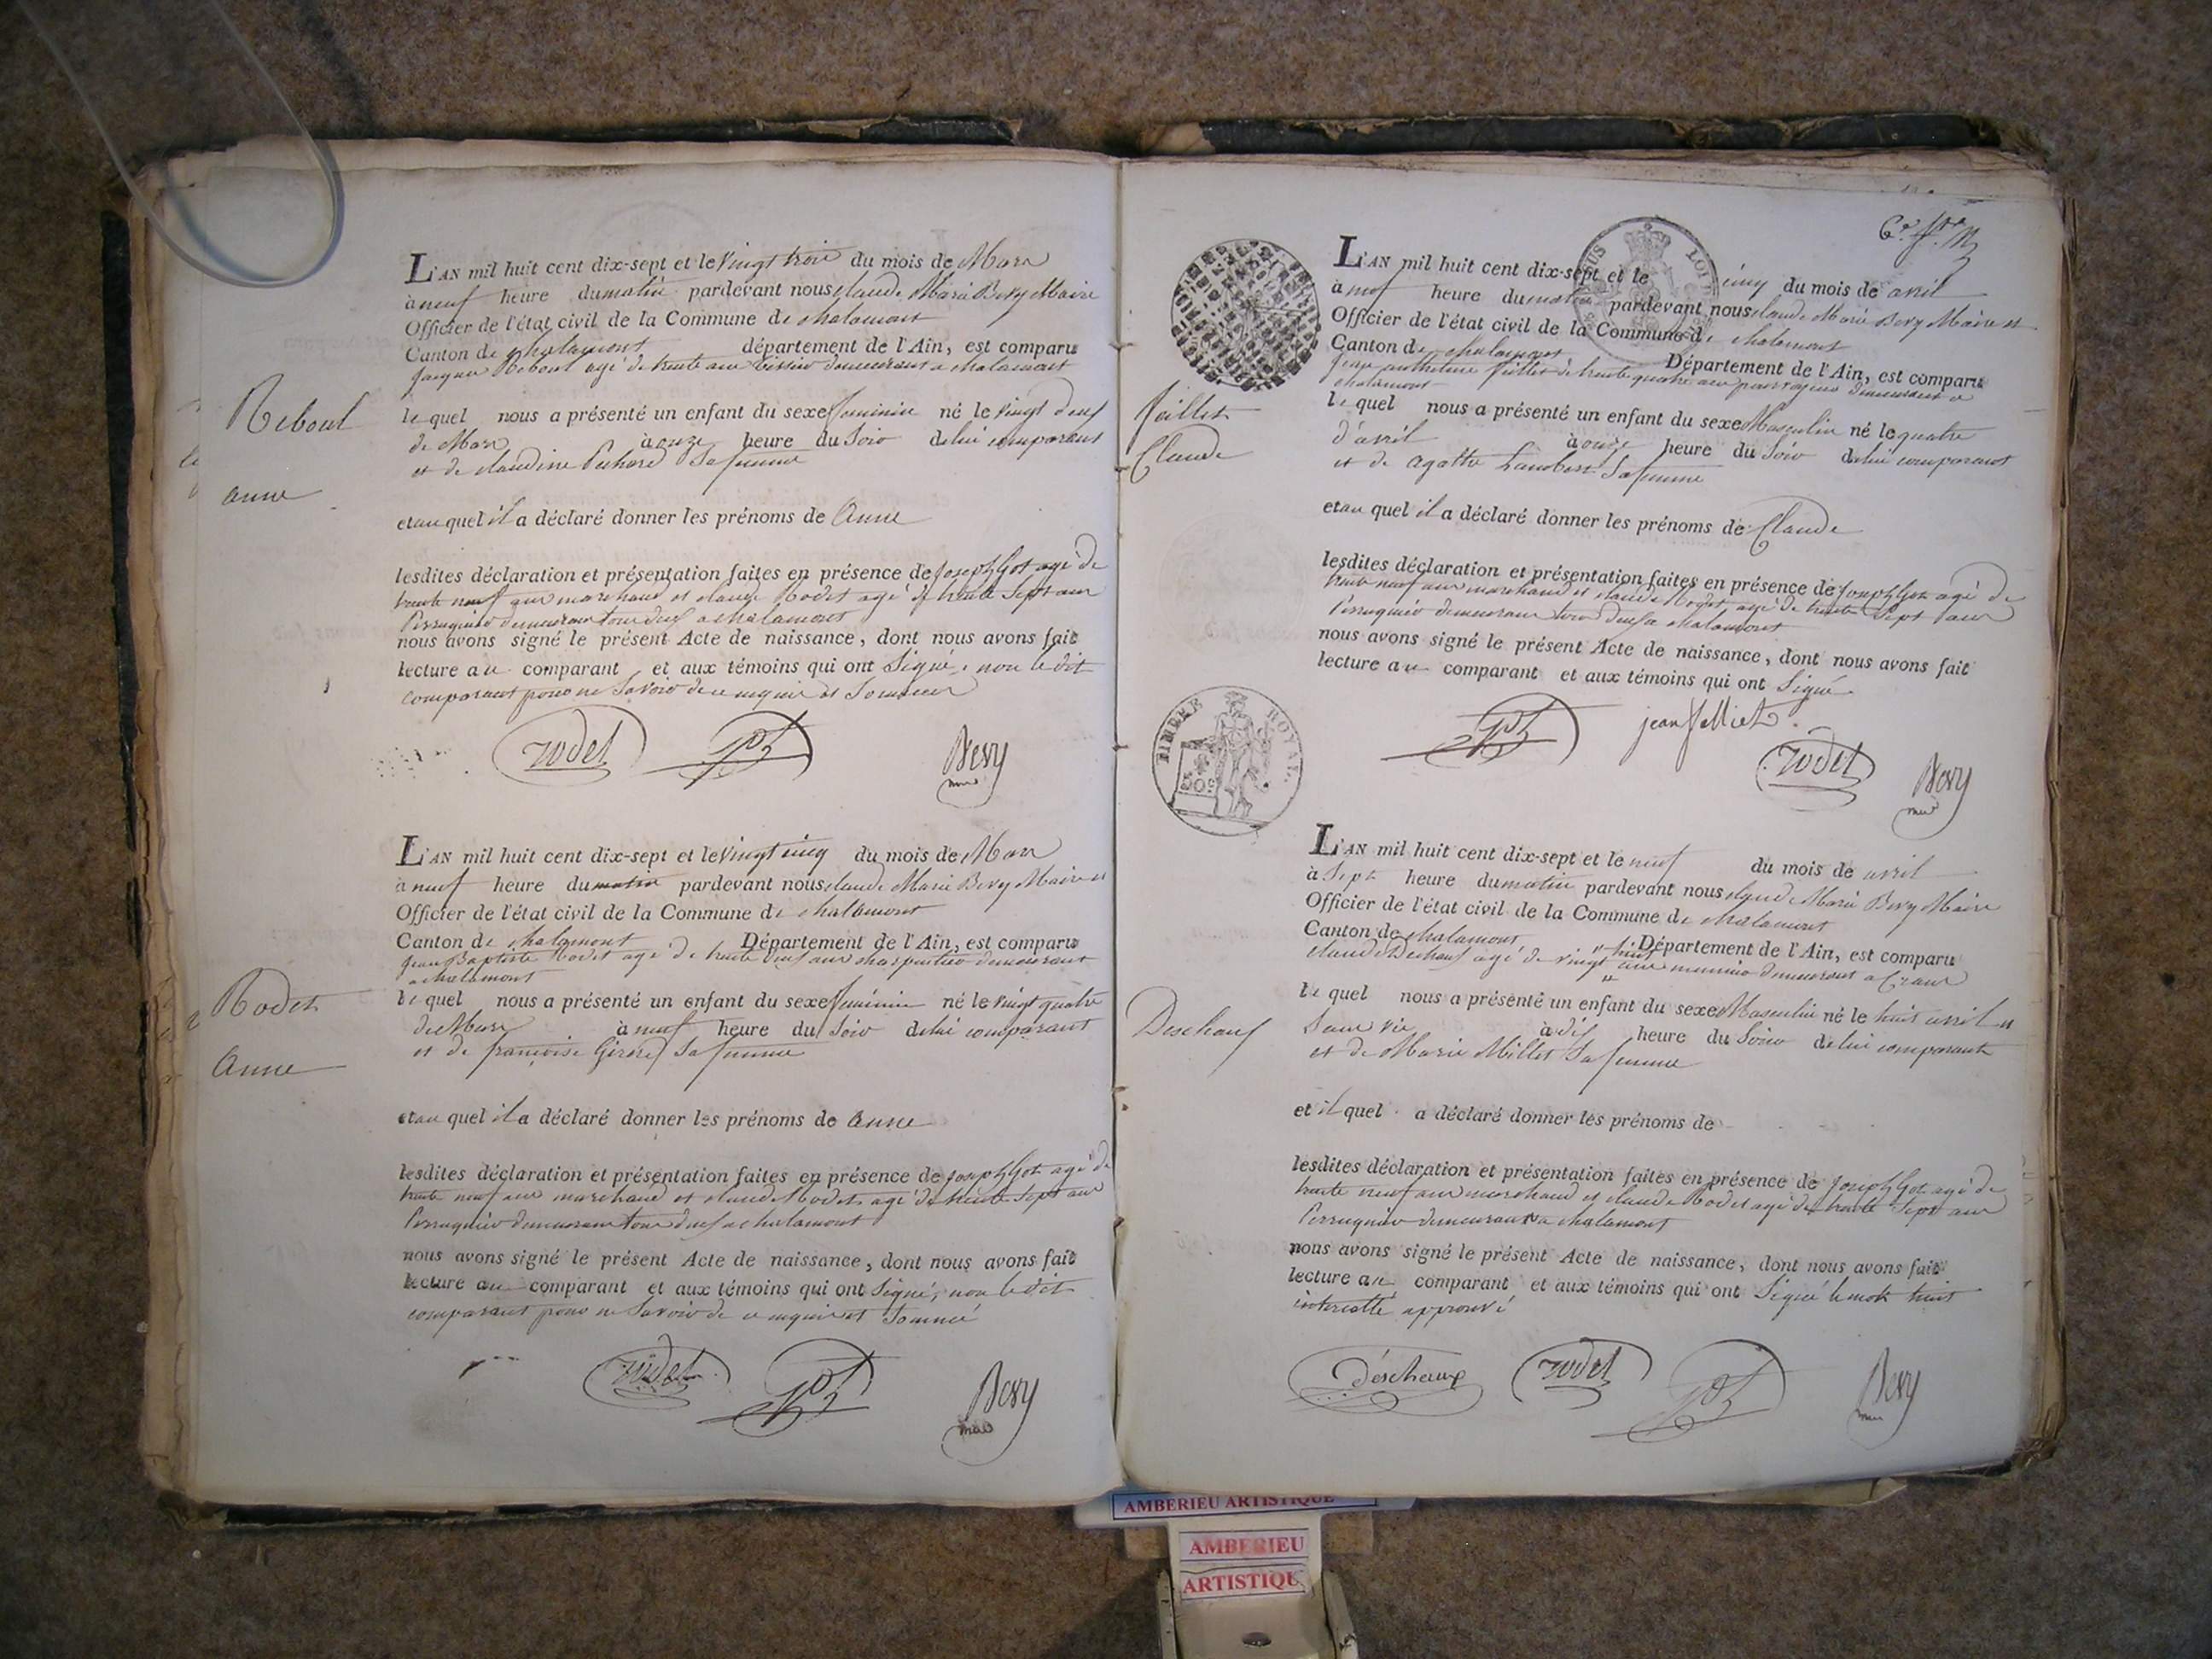 L'AN mil huit cent dix-sept et le vingt trois du mois de Mars
à neuf heure du matin pardevant nous claude Marie Bevy Maire
Officier de l'état civil de la Commune de chalamont
Canton de chalamont département de l'Ain, est comparu
jacques Reboul agé de trente ans demeurant a chalamont
Reboul
le quel nous a présenté un enfant du sexe feminin né le vingt deux
de Mars à onze heure du Soir de lui comparant
et de claudine Sa femme
anne
et au quel il a déclaré donner les prénoms de Anne
lesdites déclaration et présentation faites en présence de joseph Got agé de
trente neuf ans marchand et claude Rodet agé de trente Sept ans
Perruquier demeurant tous deux a chalamont
nous avons signé le présent Acte de naissance, dont nous avons fait
lecture au comparant et aux témoins qui ont Signé, non le dit
comparant pour ne Savoir de ce enquis et Sommer
rodet Got Bevy
L'AN mil huit cent dix-sept et le vingt cinq du mois de Mars
à neuf heure du matin pardevant nous claude Marie Bevy Maire et
Officier de l'état civil de la Commune de chalamont
Canton de chalamont Département de l'Ain, est comparu
jean Baptiste Rodet agé de trente deux ans charpentier demeurant
a chalamont
Rodet
le quel nous a présenté un enfant du sexe feminin né le vingt quatre
de Mars à neuf heure du Soir de lui comparant
et de francoise Girard Sa femme
Anne
et au quel il a déclaré donner les prénoms de Anne
lesdites déclaration et présentation faites en présence de joseph Got agé de
trente neuf ans marchand et claude Rodet agé de trente Sept ans
Perruquier demeurant tous deux a chalamont
nous avons signé le présent Acte de naissance, dont nous avons fait
lecture au comparant et aux témoins qui ont Signé, non le dit
comparant pour ne Savoir de ce enquis et Sommé
rodet Got Bevy
L'AN mil huit cent dix-sept et le cinq du mois de avril
à neuf heure du matin pardevant nous claude Marie Bevy Maire et
Officier de l'état civil de la Commune de chalamont
Canton de chalamont Département de l'Ain, est comparu
jean anthelme fillet de trente quatre ans demeurant a
chalamont
le quel nous a présenté un enfant du sexe Masculin né le quatre
d'avril à onze heure du Soir de lui comparant
Claude
et de agatte Lambert Sa femme
et au quel il a déclaré donner les prénoms de Claude
lesdites déclaration et présentation faites en présence de joseph Got agé de
trente neuf ans marchand et claude Rodet agé de trente Sept ans
Perruquier demeurant tous deux a chalamont
nous avons signé le présent Acte de naissance, dont nous avons fait
lecture au comparant et aux témoins qui ont Signé
TIMBRE ROYAL
50c
Got jean rodet Bevy
L'AN mil huit cent dix-sept et le neuf du mois de avril
à Sept heure du matin pardevant nous claude Marie Bevy Maire
Officier de l'état civil de la Commune de chalamont
Canton de chalamont Département de l'Ain, est comparu
claude Dechaux agé de vingt huit ans demeurant a Crans
Deschaux
le quel nous a présenté un enfant du sexe Masculin né le huit avril et
Sans vie à dix heure du Soir de lui comparant
et de Marie Millet Sa femme
et il quel a déclaré donner les prénoms de
lesdites déclaration et présentation faites en présence de joseph Got agé de
trente neuf ans marchand et claude Rodet agé de trente Sept ans
Perruquier demeurant a chalamont
nous avons signé le présent Acte de naissance, dont nous avons fait
lecture au comparant et aux témoins qui ont Signé le mot huit
approuvé
déschaux rodet Got Bevy
AMBERIEU ARTISTIQUE
AMBERIEU
ARTISTIQU